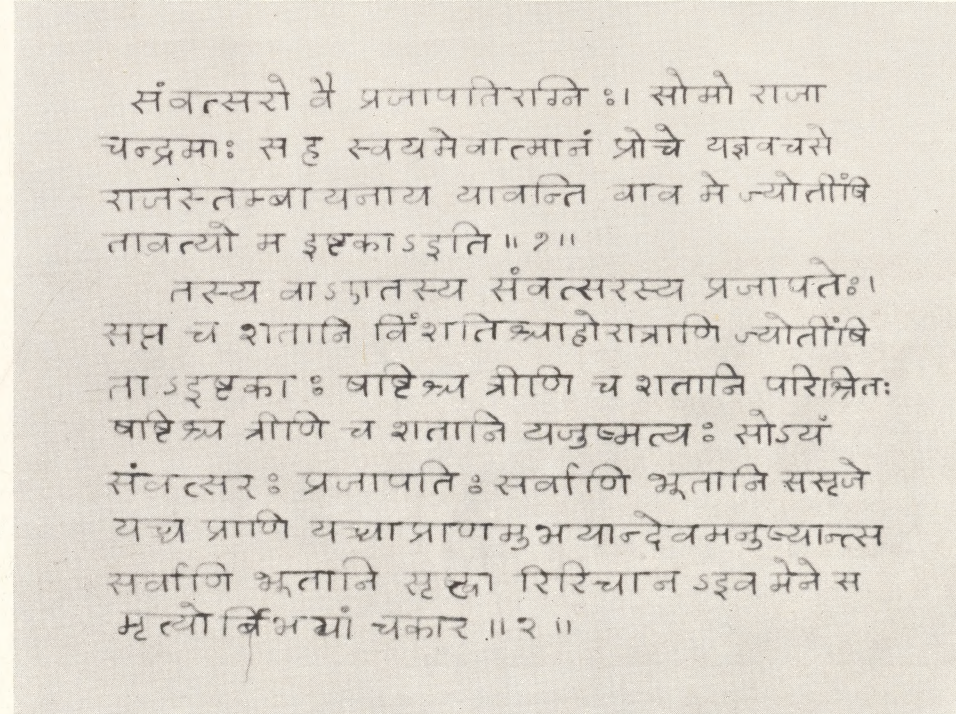 संवत्सरो वै प्रजापतिरग्निः। सोमो राजा
चन्द्रमाः स ह स्वयमेवात्मानं प्रोचे यज्ञवचसे
राजस्तम्बायनाय यावन्ति वाव मे ज्योतींषि
तावत्यो म इष्टकाऽइति ॥ १ ॥
तस्य वाऽएतस्य संवत्सरस्य प्रजापतेः।
सप्त च शतानि विंशतिश्चाहोरात्राणि ज्योतींषि
ताऽइष्टकाः षाष्टिश्च त्रीणि च शतानि परिश्रितः
षाष्टिश्च त्रीणि च शतानि यजुष्मत्यः सोऽयं
संवत्सरः प्रजापतिः सर्वाणि भूतानि ससृजे
यच्च प्राणि यच्चाप्राणमुभयान्देवमनुष्यान्त्स
सर्वाणि भूतानि सृष्ट्वा रिरिचान ऽइव मेने स
मृत्योर्बिभयां चकार ॥ २ ॥